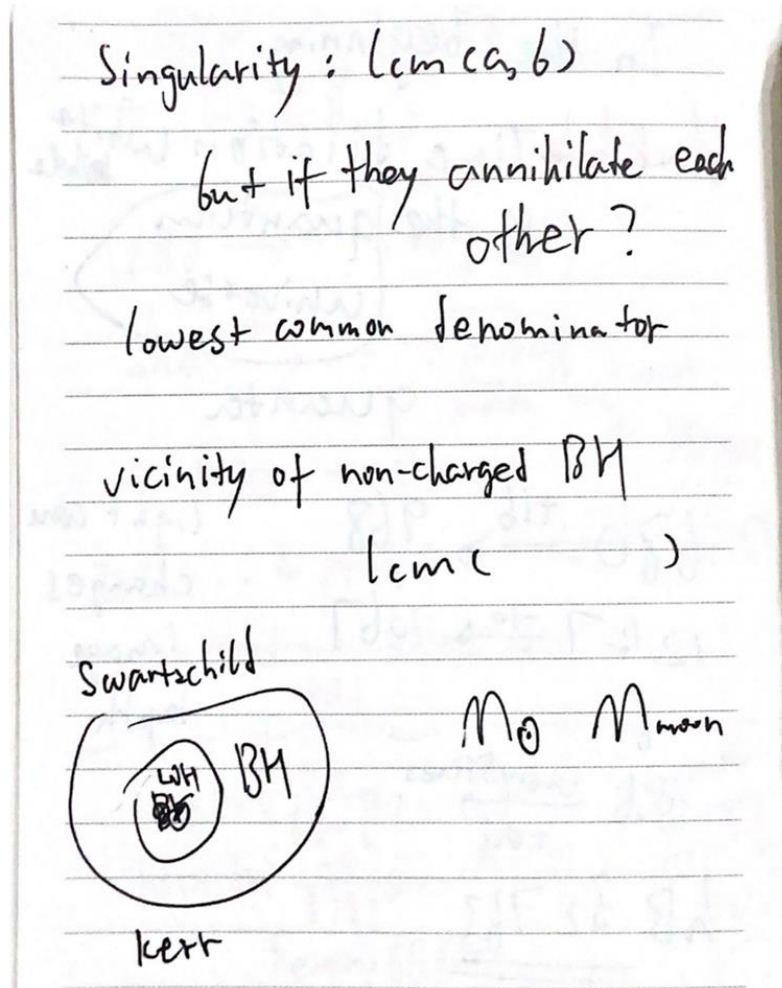 Singularity: lcm(a,b)
but if they annihilate each
other?
lowest common denominator
vicinity of non-charged BH
lcm( )
Swartschild
M☉ Mmoon
WH BH
kerr